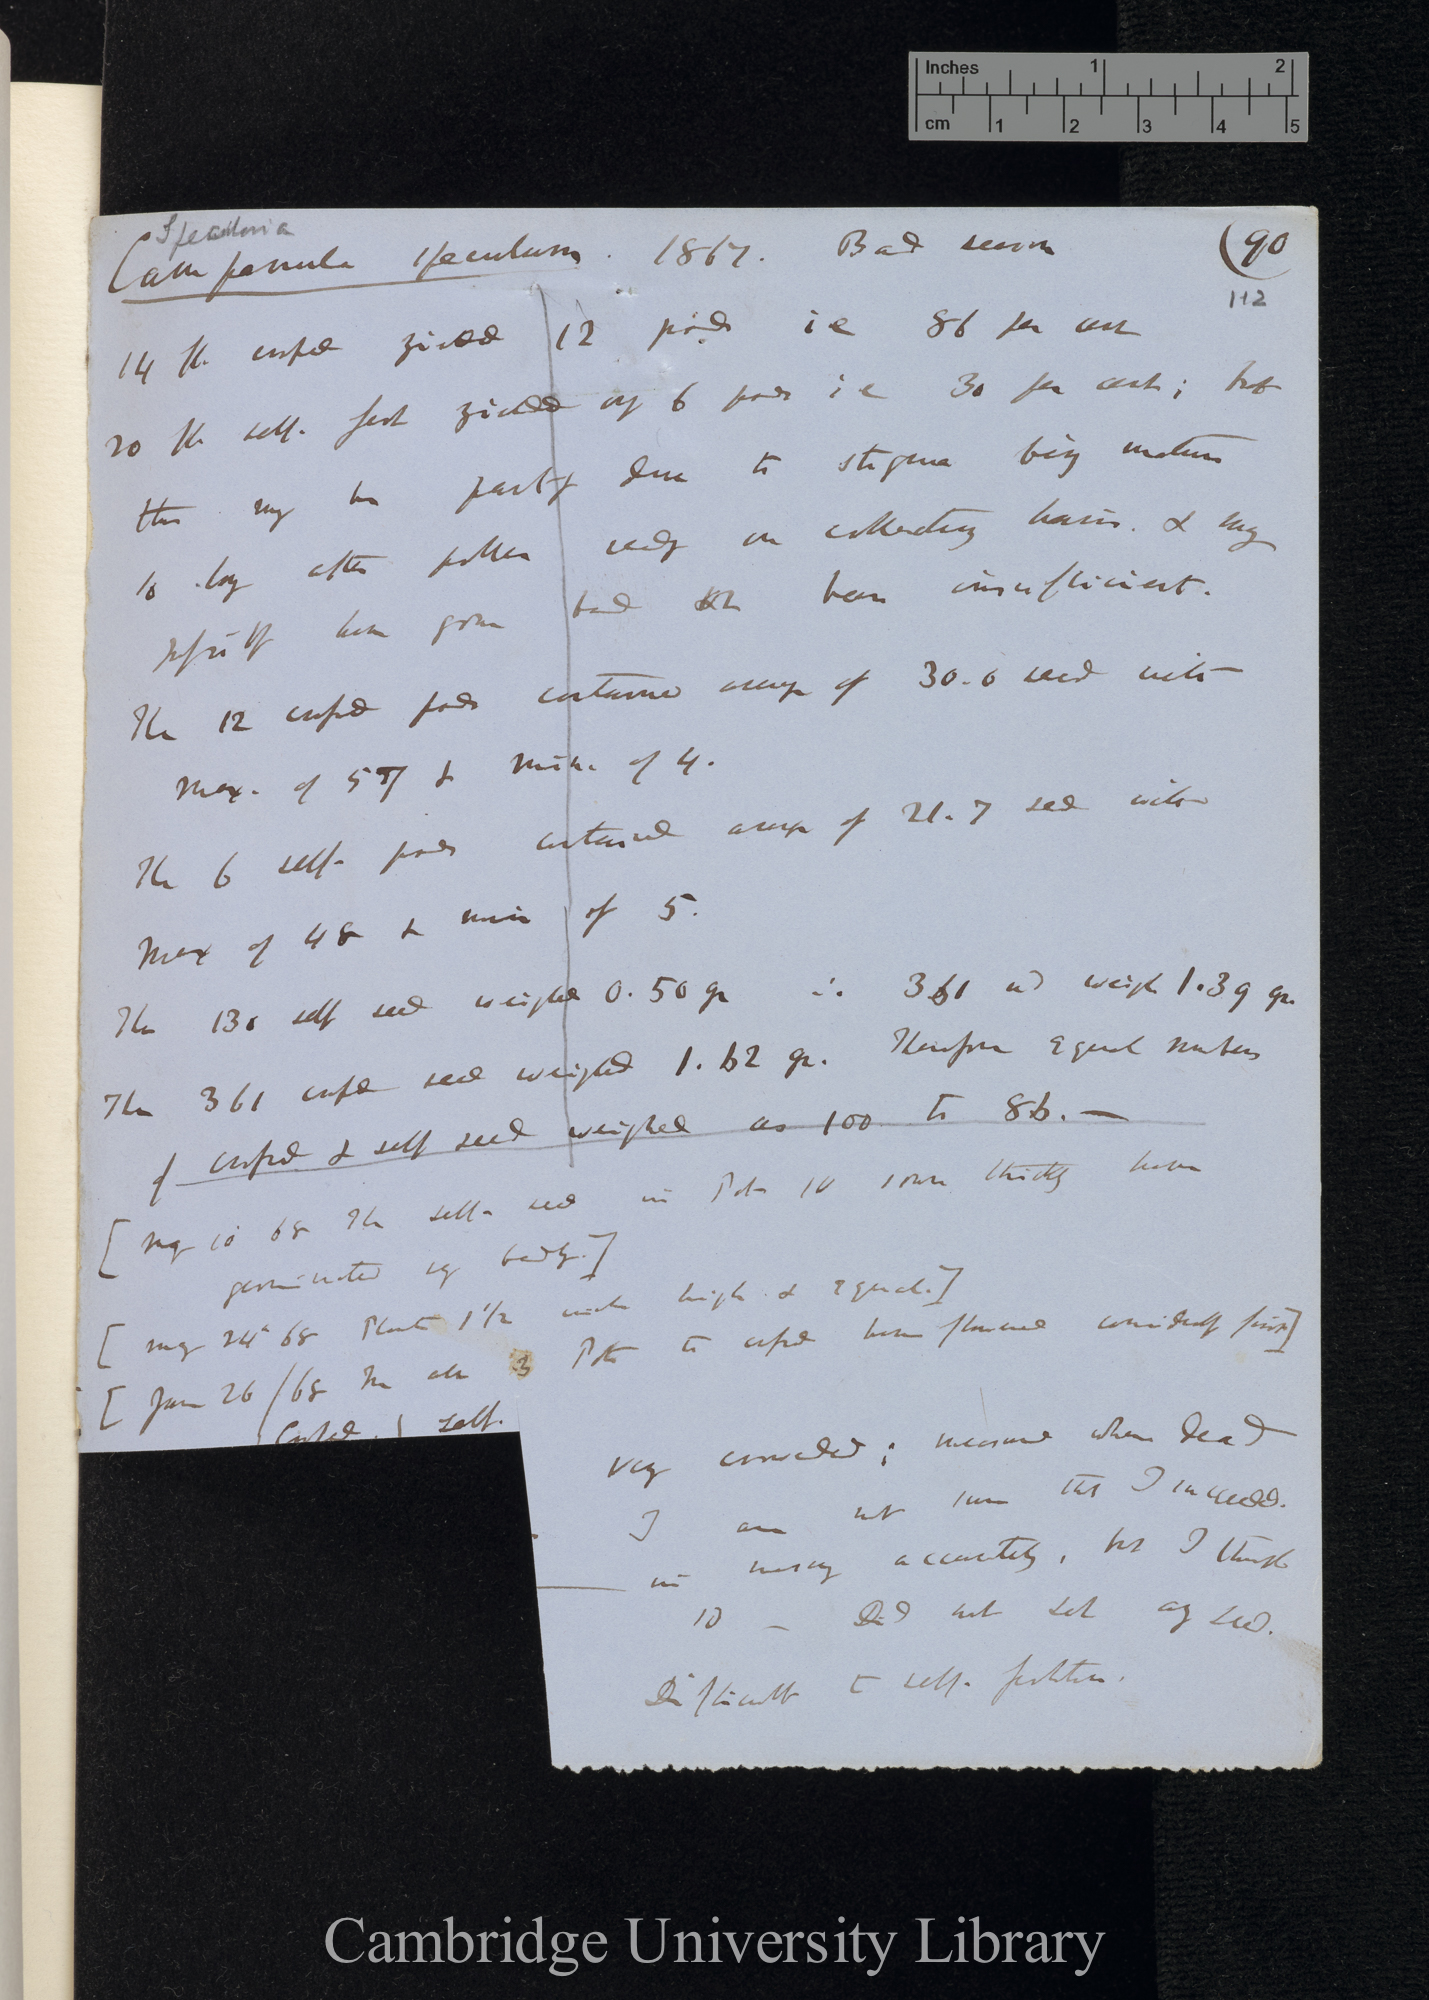 Inches 1 2
cm 1 2 3 4 5
Specularia
Campanula speculum. 1867. Bad season (90
112
14 fl. crossed yielded 12 pods ie 86 per cent
20 fl. self. fert yielded only 6 pods ie 30 per cent; but
this may be partly due to stigma being mature
so long after pollen ready on collecting hairs. & may
itself have gone bad or been insufficient.
The 12 crossed pods contained average of 30.0 seed with
max. of 57 & min. of 4.
The 6 self- pods contained average of 21.7 seed with
max of 48 & min of 5.
The 130 self seed weighed 0.50 gr ∴ 361 wd weigh 1.39 gr.
The 361 crossed seed weighed 1.62 gr. Therefore equal numbers
of crossed & self seed weighed as 100 to 86. —
[May 10 68 The self- seed in Pot IV sown thickly have
germinated very badly.]
[May 24th 68 Plants 1 1/2 inch high & equal.]
[June 26/68 In all 3 Pots the crossed have flowered considerably first]
Crossed. Self.
very crowded; measured when dead
I am not sure that I succeeded.
in measuring accurately, but I think
so — Did not set any seed.
Difficult to self-fertilise.
Cambridge University Library